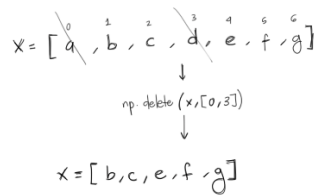 0 1 2 3 4 5 6
x = [ a , b , c , d , e , f , g ]
np.delete (x, [0,3])
x = [ b, c, e, f, g ]